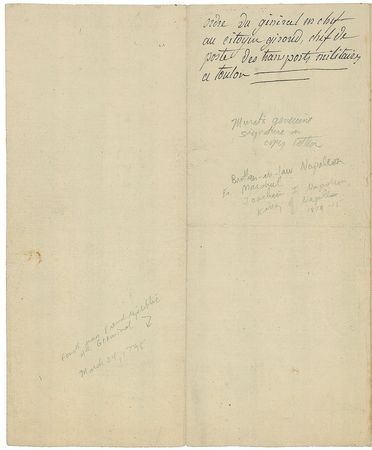 ordre du général en chef
au citoyen girard, chef de
poste des transports militaires
a toulon
Murat's genuine
signature on
copy letter
Brother-in-law Napoleon
Marshal
Joachim I Napoleon
King of Naples
Fourth year French Republic
Germinal
March 24, 1796